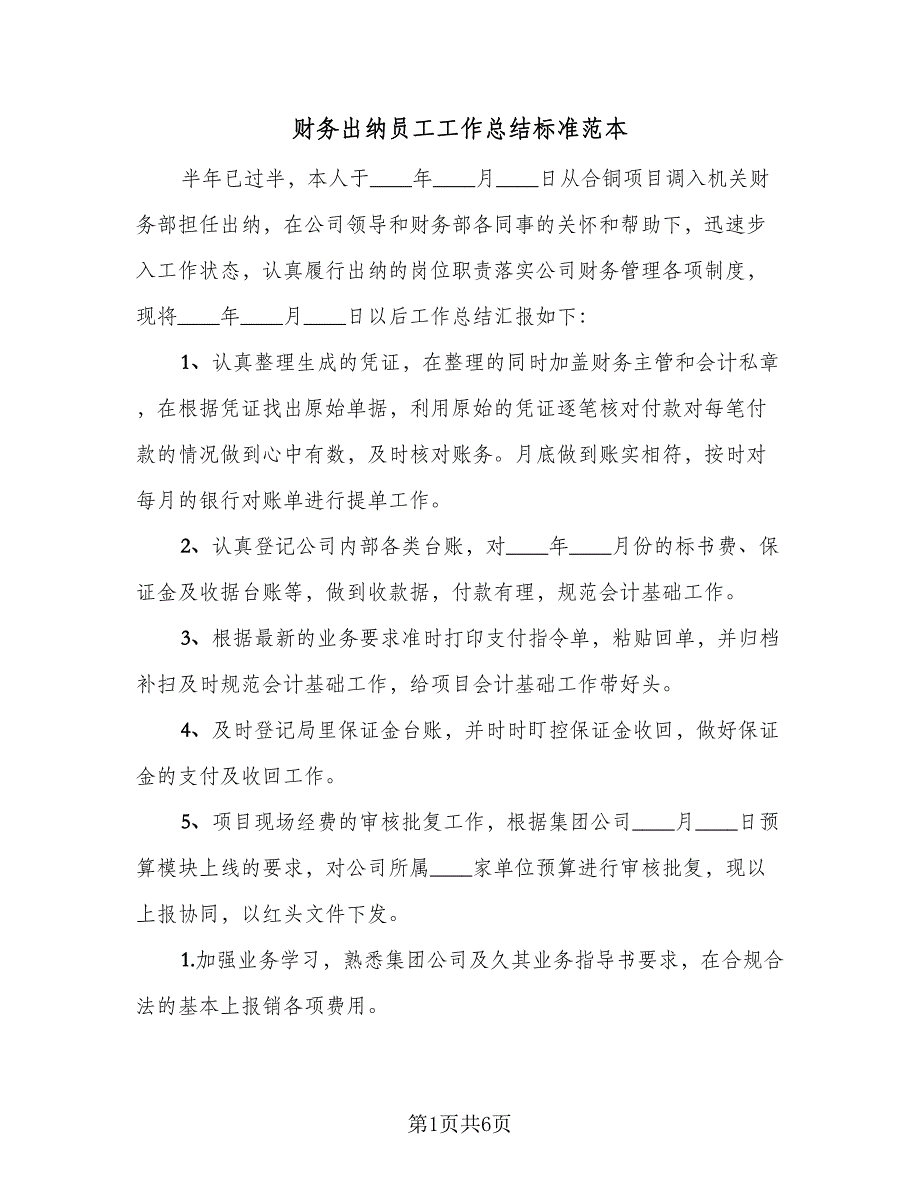 财务出纳员工工作总结标准范本
半年已过半，本人于____年____月____日从合铜项目调入机关财
务部担任出纳，在公司领导和财务部各同事的关怀和帮助下，迅速步
入工作状态，认真履行出纳的岗位职责落实公司财务管理各项制度，
现将____年____月____日以后工作总结汇报如下：
1、认真整理生成的凭证，在整理的同时加盖财务主管和会计私章
，在根据凭证找出原始单据，利用原始的凭证逐笔核对付款对每笔付
款的情况做到心中有数，及时核对账务。月底做到账实相符，按时对
每月的银行对账单进行提单工作。
2、认真登记公司内部各类台账，对____年____月份的标书费、保
证金及收据台账等，做到收款据，付款有理，规范会计基础工作。
3、根据最新的业务要求准时打印支付指令单，粘贴回单，并归档
补扫及时规范会计基础工作，给项目会计基础工作带好头。
4、及时登记局里保证金台账，并时时盯控保证金收回，做好保证
金的支付及收回工作。
5、项目现场经费的审核批复工作，根据集团公司____月____日预
算模块上线的要求，对公司所属____家单位预算进行审核批复，现以
上报协同，以红头文件下发。
1.加强业务学习，熟悉集团公司及久其业务指导书要求，在合规合
法的基本上报销各项费用。
第1页共6页